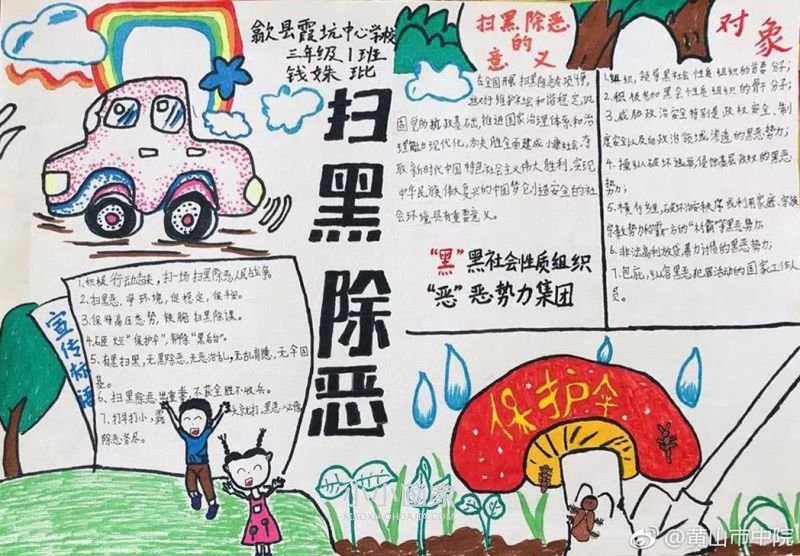 歙县霞坑中心学校
三年级1班
钱姝玭
扫黑除恶
扫黑除恶
的
意义
在全国开展扫黑除恶专项斗争,
是对维护社会和谐稳定,巩
固党的执政基础,推进国家治理体系和治
理能力现代化,为决胜全面建成小康社会,夺
取新时代中国特色社会主义伟大胜利,实现
中华民族伟大复兴的中国梦创造安全的社
会环境具有重要意义。
"黑"黑社会性质组织
"恶"恶势力集团
对象
1.组织,领导黑社会性质组织的首要分子;
2.积极参加黑会性质组织的骨干分子;
3.威胁政治安全特别是政权安全、制
度安全以及向政治领域渗透的黑恶势力;
4.操纵破坏选举侵蚀基层政权的黑恶
势力;
5.横行乡里,破坏治安秩序或利用家庭、宗族
宗教势力称霸一方的"村霸"等黑恶势力;
6.非法高利放贷,暴力讨债的黑恶势力;
7.包庇,纵容黑恶犯罪活动的国家工作人
员。
宣传标语
1.积极行动起来,打一场扫黑除恶人民战争。
2.扫黑恶,净环境,促稳定,保平安。
3.保持高压态势,铁腕扫黑除误。
4.砸烂"保护伞",铲除"黑后台"。
5.有黑扫黑,无黑除恶,无恶治乱,无乱肯德,无伞固
基。
6.扫黑除恶出重拳,不获全胜不收兵。
7.打早打小,露头就打,黑恶必除
除恶务尽。
保护伞
小小画家
XIAOXIAOHUAJIA.COM
@黄山市中院